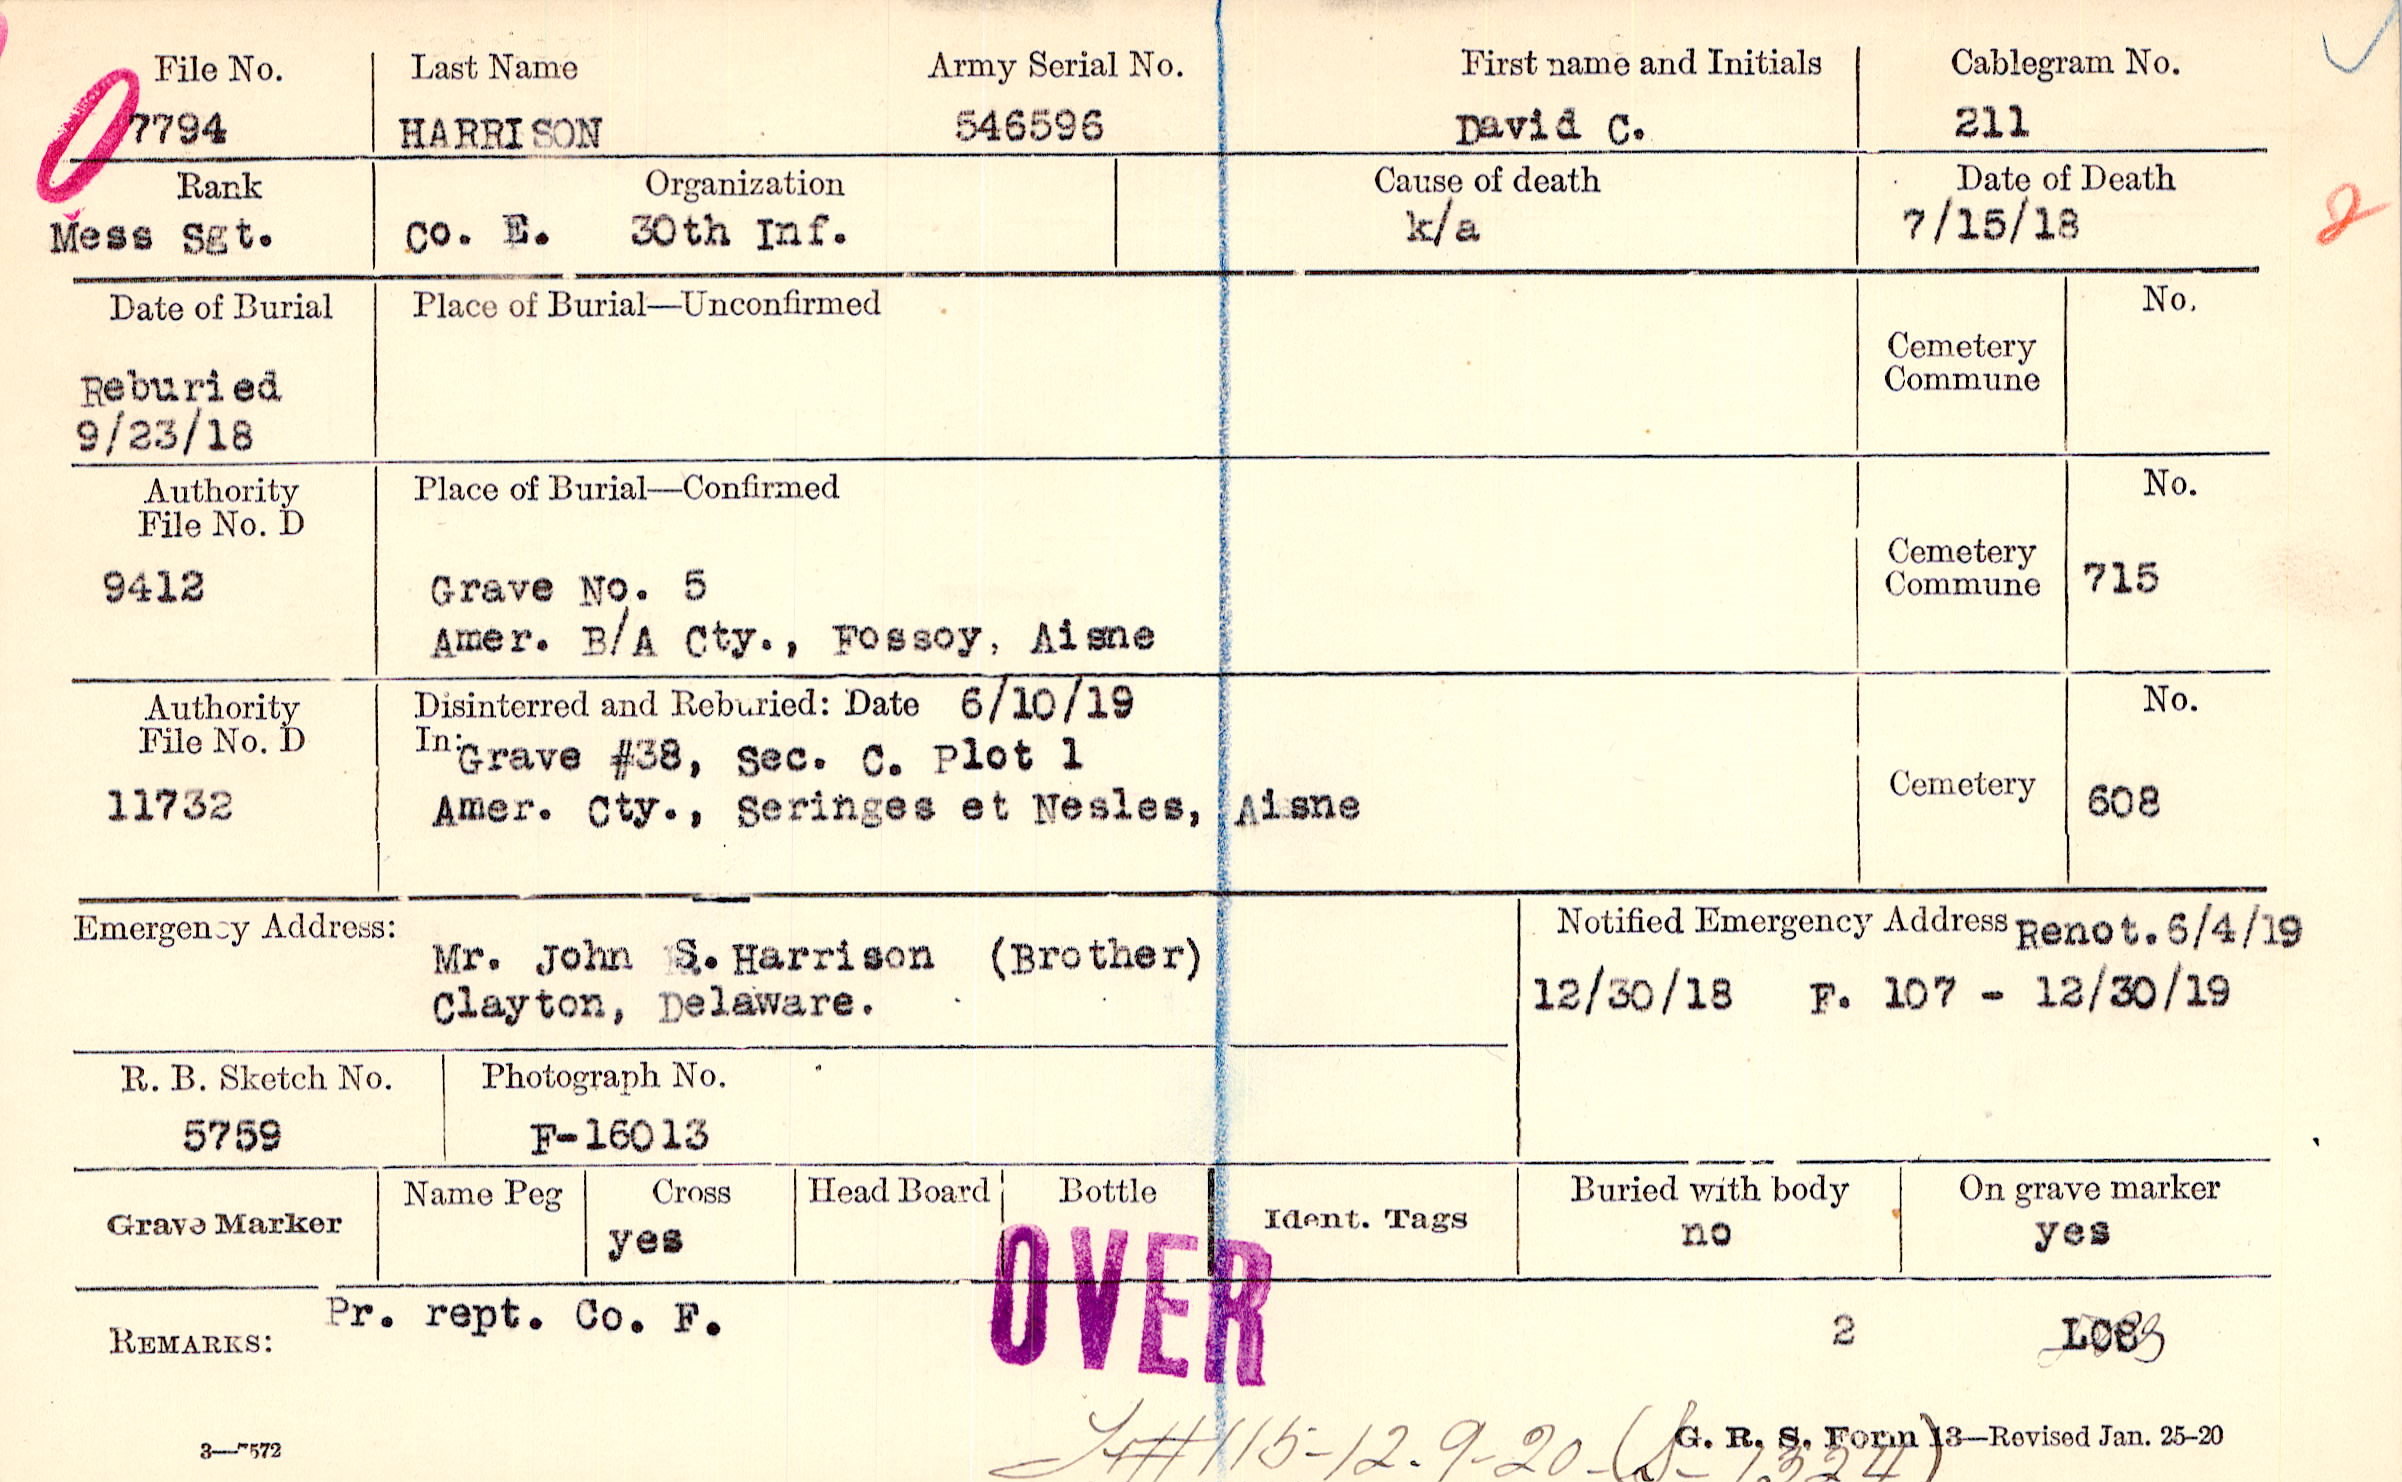 File No. Last Name Army Serial No. First name and Initials Cablegram No.
7794 HARRISON 546596 David C. 211
Rank Organization Cause of death Date of Death
Mess Sgt. Co. E. 30th Inf. k/a 7/15/18
2
Date of Burial Place of Burial—Unconfirmed No.
Cemetery
Commune
Reburied
9/23/18
Authority Place of Burial—Confirmed No.
File No. D
Cemetery
9412 Grave No. 5 Commune 715
Amer. B/A Cty., Fossoy, Aisne
Authority Disinterred and Reburied: Date 6/10/19 No.
File No. D In: Grave #38, Sec. C. Plot 1
11732 Amer. Cty., Seringes et Nesles, Aisne Cemetery 608
Emergency Address: Notified Emergency Address Renot. 6/4/19
Mr. John S. Harrison (Brother)
Clayton, Delaware. 12/30/18 F. 107 - 12/30/19
R. B. Sketch No. Photograph No.
5759 F-16013
Grave Marker Name Peg Cross Head Board Bottle Ident. Tags Buried with body On grave marker
yes no yes
OVER
REMARKS: Pr. rept. Co. F. 2
#115-12.9-20-
3—7572 G. R. S. Form 13—Revised Jan. 25-20